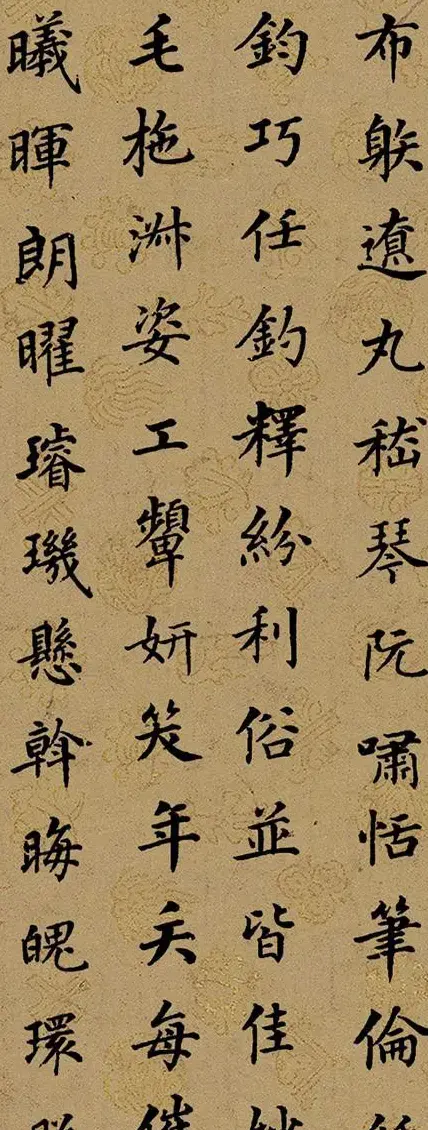 布䠶遼丸嵇琴阮嘯恬筆倫
鈞巧任釣釋紛利俗並皆佳
毛施淑姿工顰妍笑年矢每
曦暉朗曜璿璣懸斡晦魄環